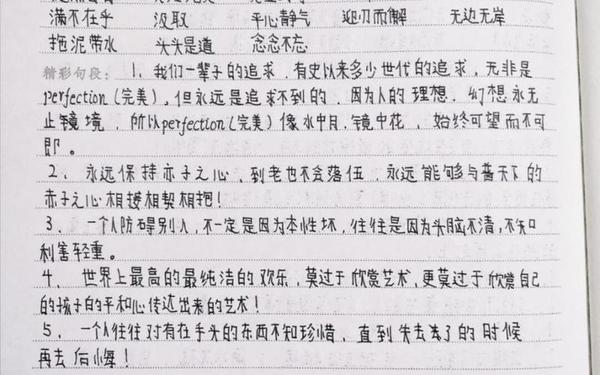 满不在乎 汲取 平心静气 迎刃而解 无边无岸
拖泥带水 头头是道 念念不忘
精彩句段：1、我们一辈子的追求，有史以来多少世代的追求，无非是
perfection(完美)，但永远是追求不到的，因为人的理想、幻想永无
止镜境，所以perfection(完美)像水中月，镜中花，始终可望而不可
即。
2、永远保持赤子之心，到老也不会落伍，永远能够与普天下的
赤子之心相接相契相抱！
3、一个人防碍别人，不一定是因为本性坏，往往是因为头脑不清，不知
利害轻重。
4、世界上最高的最纯洁的欢乐，莫过于欣赏艺术，更莫过于欣赏自己
的孩子的平和心传达出来的艺术！
5、一个人往往对有在手头的东西不知珍惜，直到失去了的时候
再去后悔！